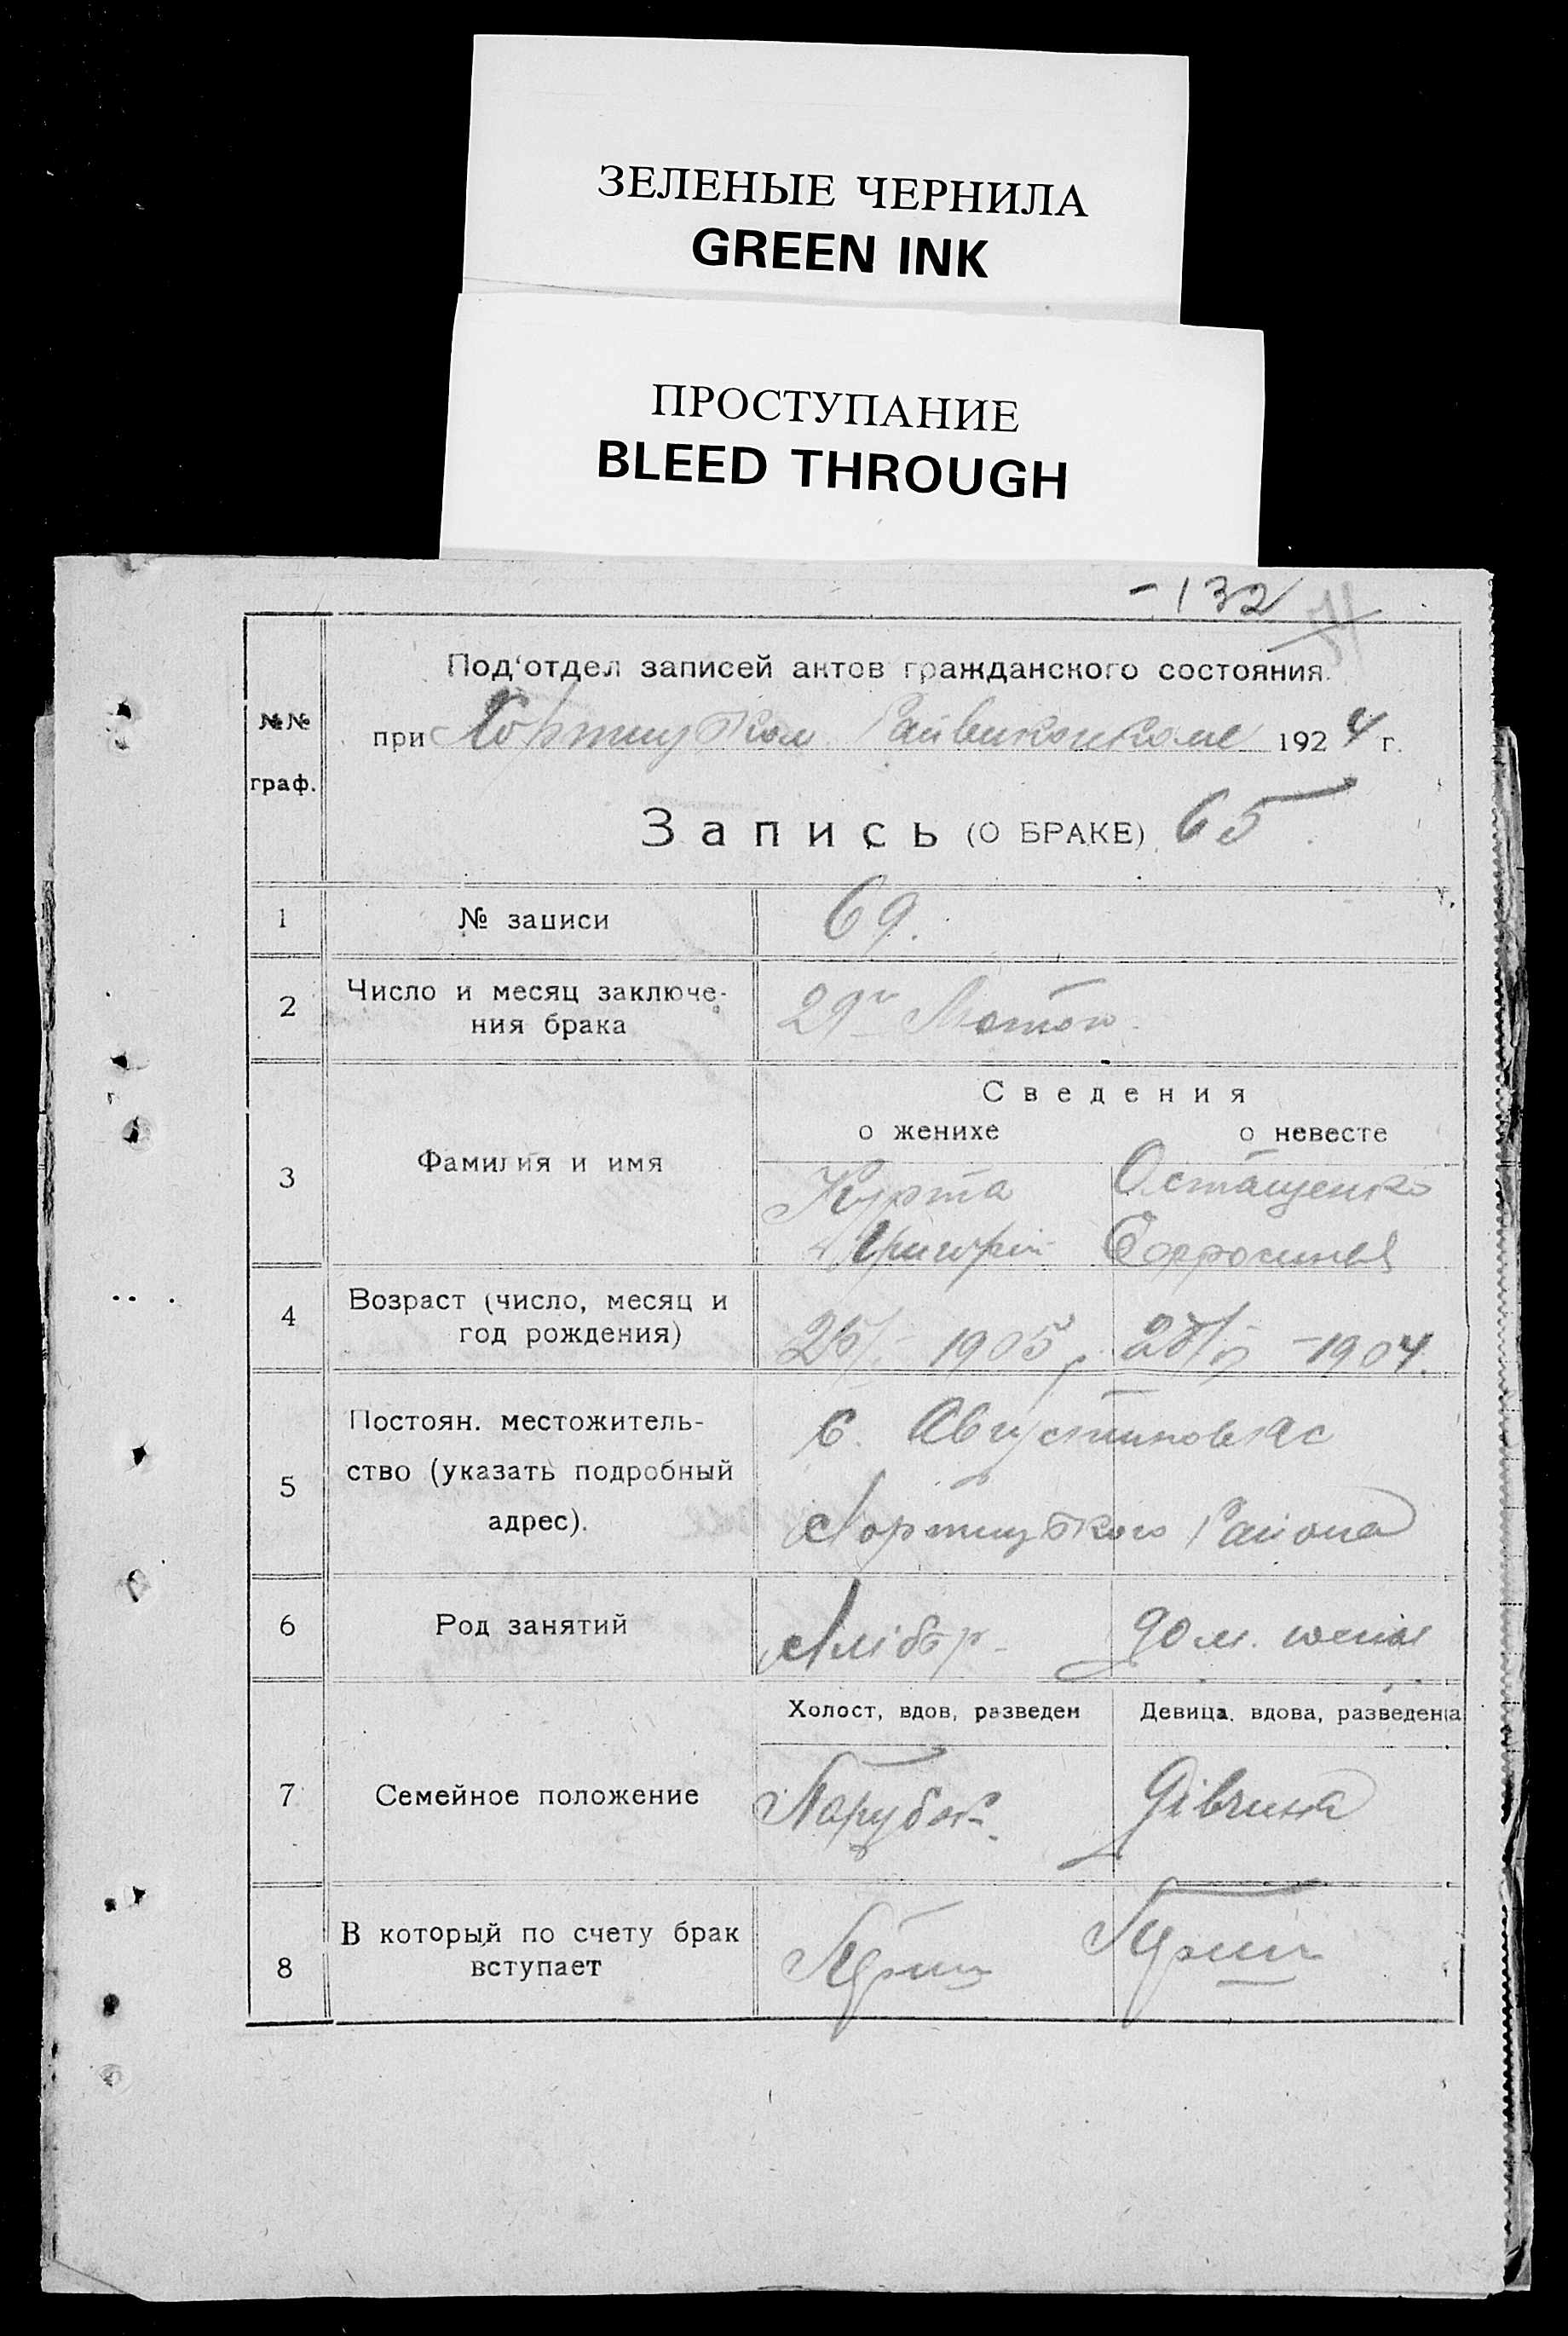 ЗЕЛЕНЫЕ ЧЕРНИЛА
GREEN INK
ПРОСТУПАНИЕ
BLEED THROUGH
-132
№№ граф.
Под'отдел записей актов гражданского состояния.
при Хортицьком Райвиконкоме 1924 г.
Запись (О БРАКЕ) 65
1 № записи 69.
2 Число и месяц заключе-
ния брака 29го Лютого
Сведения
о женихе о невесте
3 Фамилия и имя Курта Остащенко
Григорій
4 Возраст (число, месяц и
год рождения) 1905 1904.
5 Постоян. местожитель-
ство (указать подробный
адрес).
С. Августиновкас
Хортицького Района
6 Род занятий Хлібор. дом.
Холост, вдов, разведен Девица, вдова, разведенна
7 Семейное положение Парубок. Дівчина
8 В который по счету брак
вступает Перши Перши